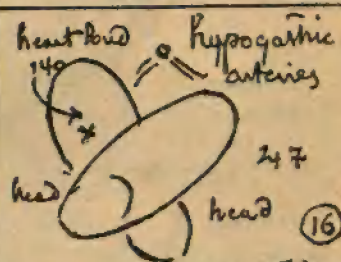 heart Loud hypogastric
140 arteries
247
head head
16